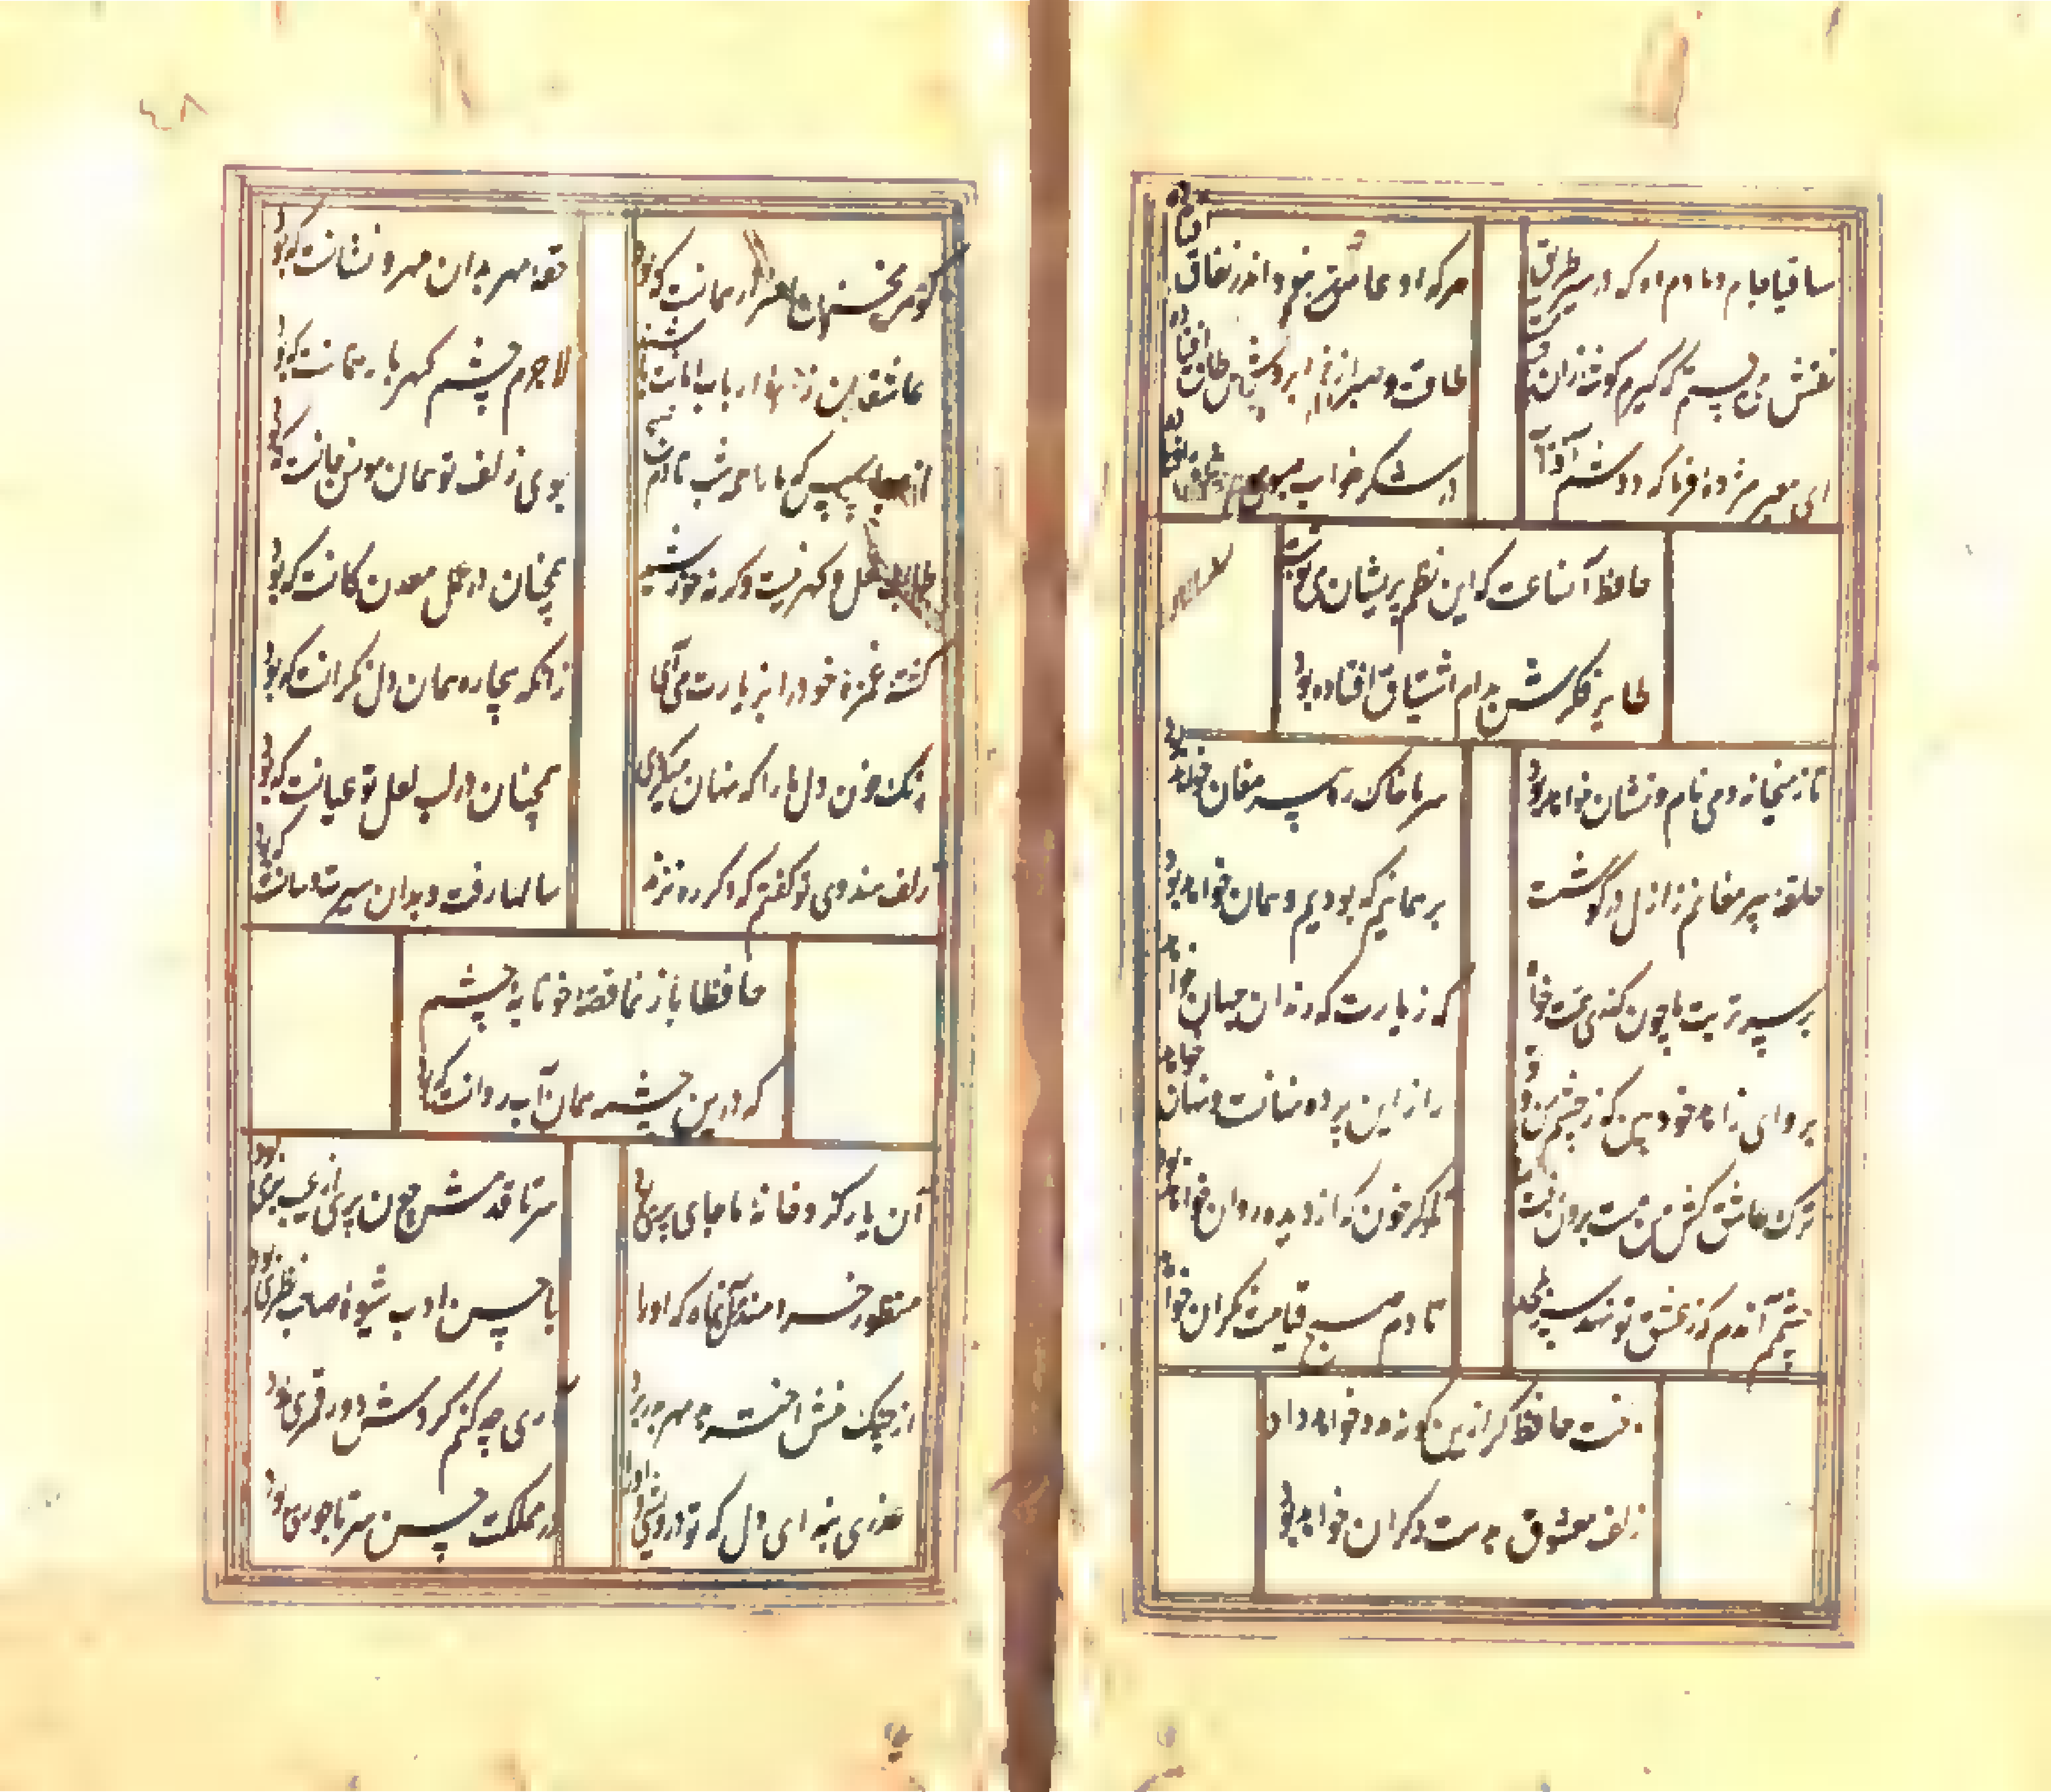 ساقیا جام دمادم ده که در سیر طریق
هر که او عاشق نبود اندر نفاق افتاده بود
نقش می بستم که گیرم گوشه زان چشم مست
طاقت و صبر از خم ابروش طاق افتاده بود
ای معبر مژده فرما که دوشم آفتاب
در شکر خواب صبوحی هم وثاق افتاده بود
حافظ آن ساعت که این نظم پریشان می نوشت
طایر فکرش بدام اشتیاق افتاده بود
تا ز میخانه و می نام و نشان خواهد بود
سر ما خاک ره پیر مغان خواهد بود
حلقه پیر مغانم ز ازل در گوشست
بر همانیم که بودیم و همان خواهد بود
بر سر تربت ما چون گذری همت خواه
که زیارت که رندان جهان خواهد بود
برو ای زاهد خودبین که ز چشم من و تو
راز این پرده نهانست و نهان خواهد بود
ترک عاشق کش من مست برون رفت
تا دگر خون که از دیده روان خواهد بود
چشمم آندم که ز عشق تو نهد سر بلحد
تا دم صبح قیامت نگران خواهد بود
بخت حافظ گر ازین گونه مدد خواهد داد
زلف معشوق بدست دگران خواهد بود
٤٨
گوهر مخزن اسرار همانست که بود
حقه مهر بدان مهر و نشانست که بود
عاشقان زمره ارباب امانت باشند
لاجرم چشم گهربار همانست که بود
از صبا پرس که ما را همه شب تا دم صبح
بوی زلف تو همان مونس جانست که بود
طالب لعل و گهر نیست وگرنه خورشید
همچنان در عمل معدن کانست که بود
کشته غمزه خود را بزیارت می آی
زانکه بیچاره همان دل نگرانست که بود
رنگ خون دل ما را که نهان میکردی
همچنان در لب لعل تو عیانست که بود
زلف هندوی تو گفتم که دگر ره نزند
سالها رفت و بدان سیرت و سانست که بود
حافظا باز نما قصه خونابه چشم
که درین چشمه همان آب روانست که بود
آن یار کزو خانه ما جای پری بود
سر تا قدمش چون پری از عیب بری بود
منظور خردمند من آن ماه که او را
با حسن ادب شیوه صاحب نظری بود
از چنگ منش اختر بد مهر بدر برد
آری چه کنم گردش دور قمری بود
عذری بنه ای دل که تو درویشی و او را
در مملکت حسن سر تاجوری بود